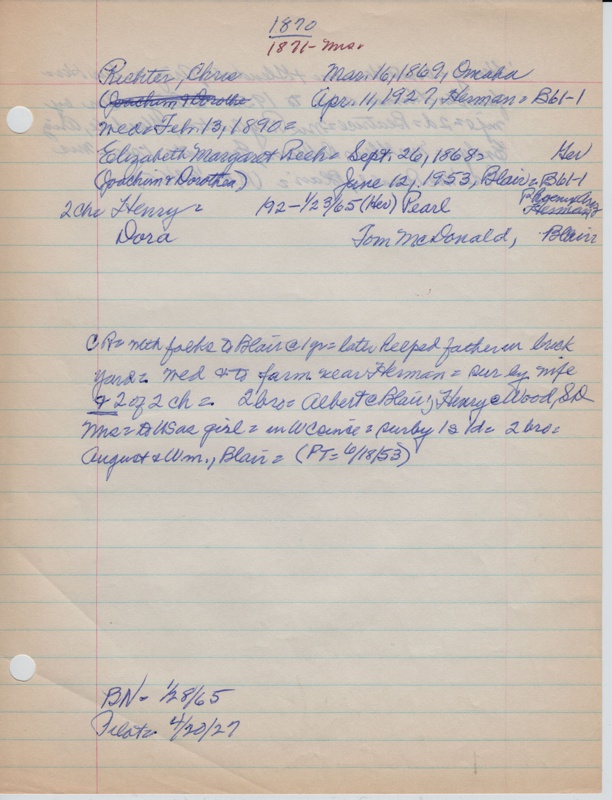 1870
1871- Mrs.
Richter, Chris Mar. 16, 1869, Omaha
(Joachim & Dorothe Apr. 11, 1927, Herman = B61-1
Wed = Feb. 13, 1890 =
Elizabeth Margaret Rech = Sept. 26, 1868 = Ger
(Joachim + Dorothea) June 12, 1953, Blair = B61-1
2ch = Henry = 192 - 1/23/65 (Her) Pearl Phoenix, Ariz Herman
Dora Tom McDonald, Blair
CR = with folks to Blair @ 1 yr = later helped father in brick
yard = wed & to farm near Herman = sur by wife
& 2 of 2 ch = 2 bro = Albert @ Blair; Henry @ Wood, SD
Mrs = to US as girl = in W since = sur by 1s 1d = 2 bro =
August & Wm., Blair = (PT = 6/18/53)
BN = 1/28/65
Pilot = 4/20/27